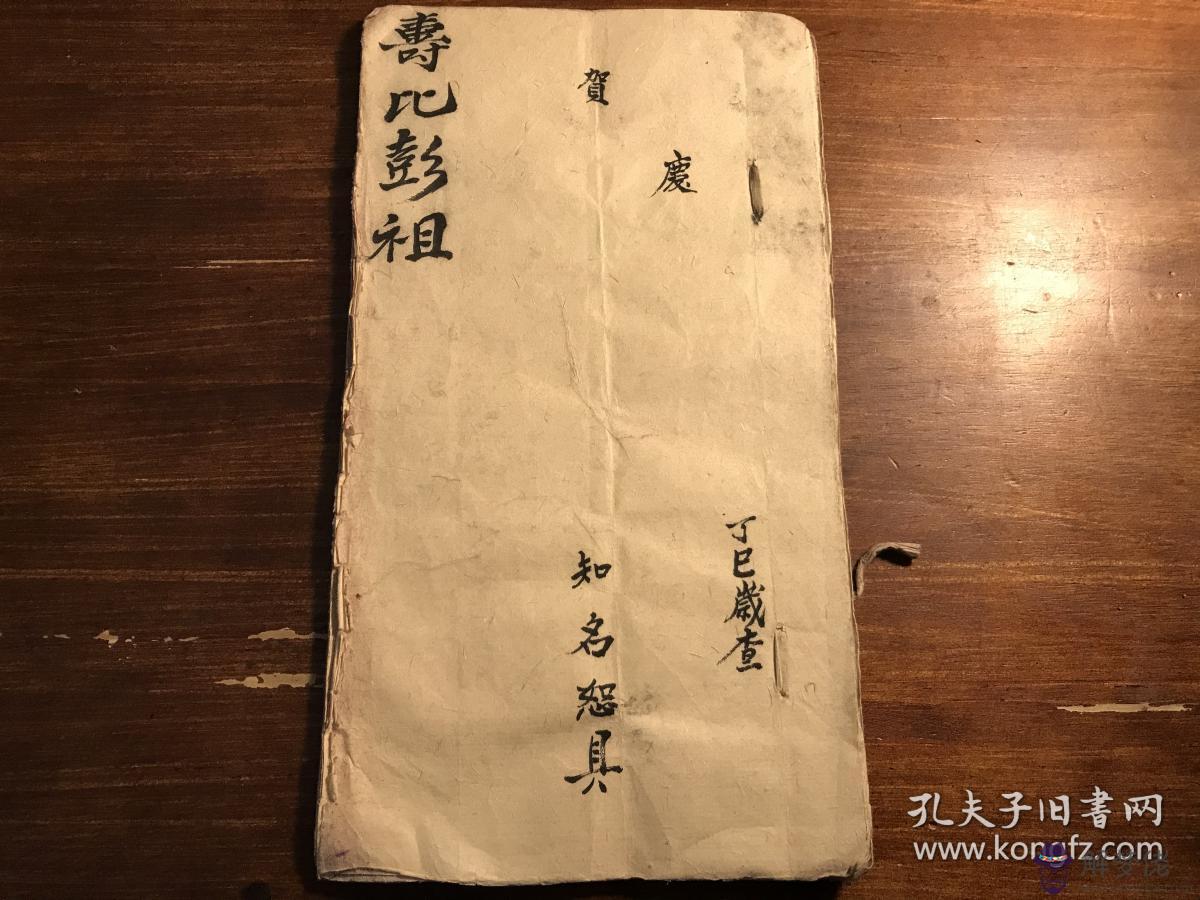 壽比彭祖
賀
慶
丁巳歲查
知名恕具
孔夫子旧書网
www.kongfz.com
解梦佬